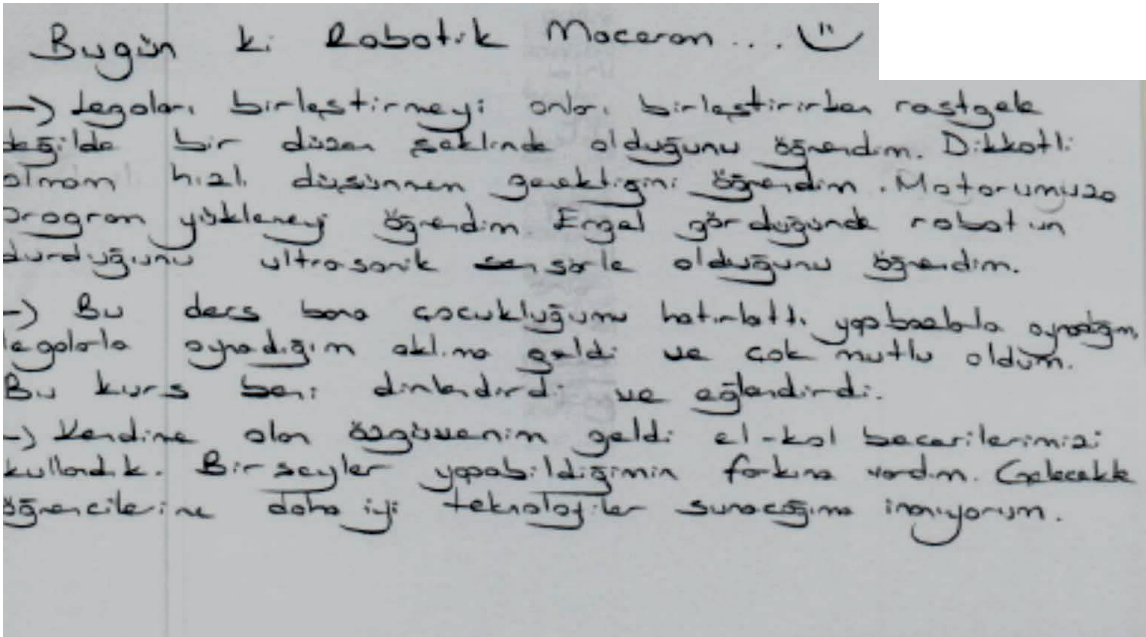 Bugün ki Robotik Maceram... Ü
-> Legoları birleştirmeyi onları birleştirirken rastgele
değilde bir düzen şeklinde olduğunu öğrendim. Dikkatli
olmam hızlı düşünmem gerektiğini öğrendim. Motorumuza
program yüklemeyi öğrendim Engel gördüğünde robotun
durduğunu ultrasonik sensörle olduğunu öğrendim.
-> Bu ders bana çocukluğumu hatırlattı yapbozlarla oynadığım,
legolarla oynadığım aklıma geldi ve çok mutlu oldum.
Bu kurs beni dinlendirdi ve eğlendirdi.
-> Kendine olan özgüvenim geldi el-kol becerilerimizi
kullandık. Bir şeyler yapabildiğimin farkına vardım. Gelecekte
öğrencilerime daha iyi teknolojiler sunacağıma inanıyorum.